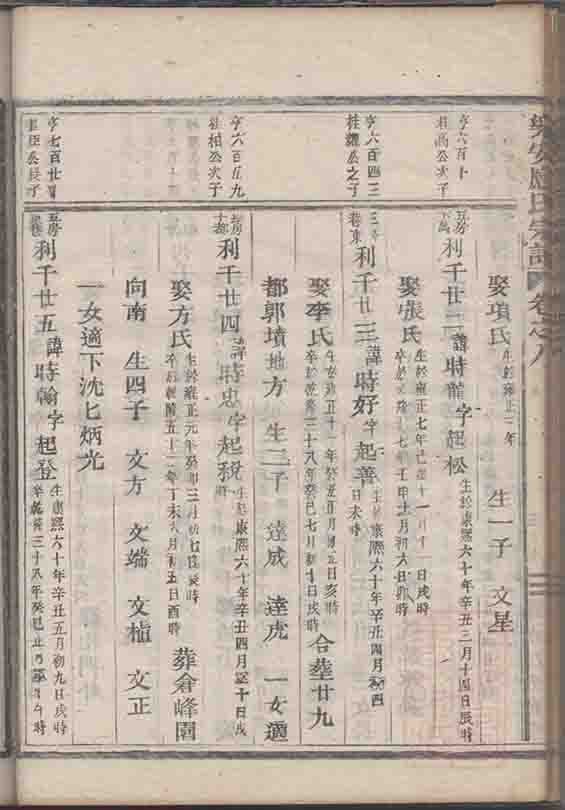 樂安應氏宗譜 卷之八
娶項氏 生於雍正二年 生一子 文星
亨六百十
桂高公次子
五房
利千廿二 諱時龍 字起松 生於康熙六十年辛丑三月十四日辰時
娶張氏 生於雍正七年己酉十一月十一日戌時
亨六百四三
桂耀公之子
利千廿三 諱時好 字起善 生於康熙六十年辛丑四月初四日未時
娶李氏 生於雍正十一年癸丑正月初五日亥時
卒於乾隆三十八年癸巳七月初十日戌時
合葬廿九
都郭墳地方 生二子 達成 達虎 一女適
亨六百五九
桂柏公次子
利千廿四 諱時忠 字起稅 生於康熙六十年辛丑四月 十日戌時
娶方氏 生於雍正元年癸卯三月初七日辰時
卒於乾隆五十二年丁未六月初五日酉時
葬倉峰園
向南 生四子 文方 文端 文植 文正
一女適下沈匕炳光
亨七百廿
桂臣公長子
五房
利千廿五 諱時翰 字起登 生康熙六十年辛丑五月初九日戌時
卒乾隆三十八年癸巳